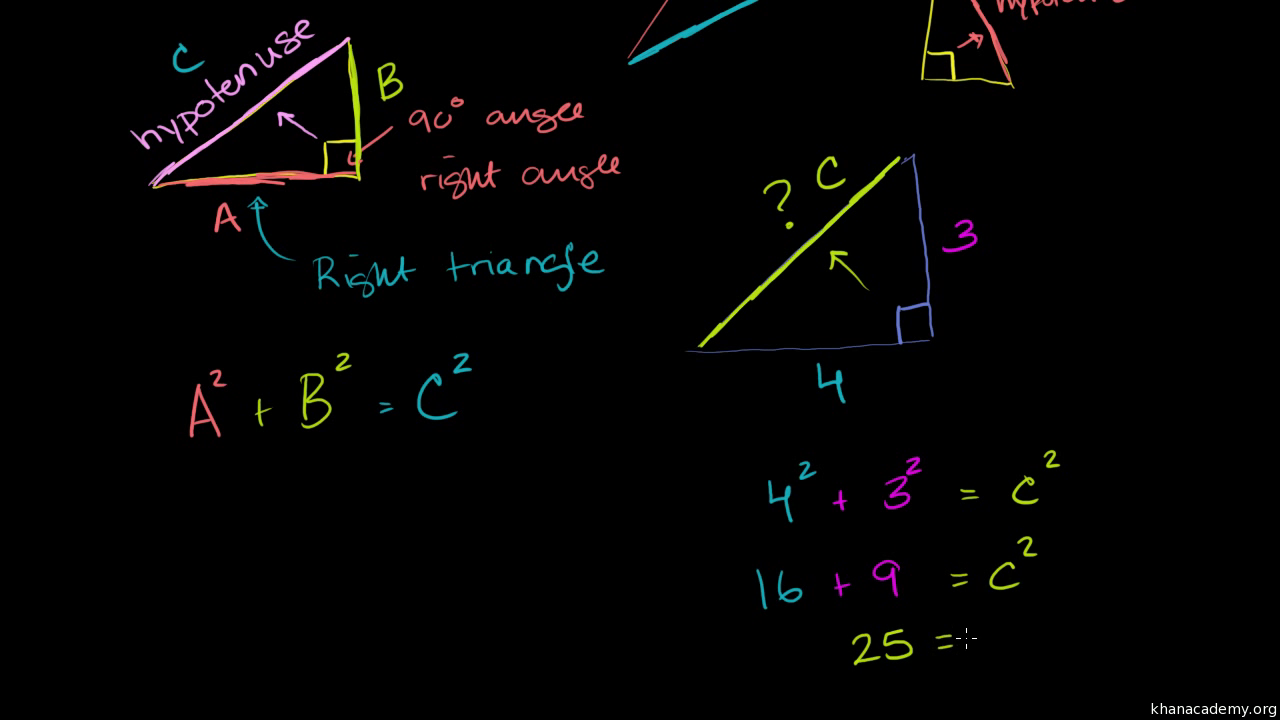 C
hypotenuse
B
90° angle
right angle
A
Right triangle
A² + B² = C²
? C
3
4
4² + 3² = C²
16 + 9 = C²
25 =
khanacademy.org